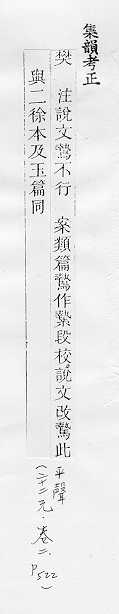 集韻考正
樊 注說文鷙不行 案類篇鷙作縶段校說文改騺此
與二徐本及玉篇同
平聲
(二十二元·卷二.
P522)